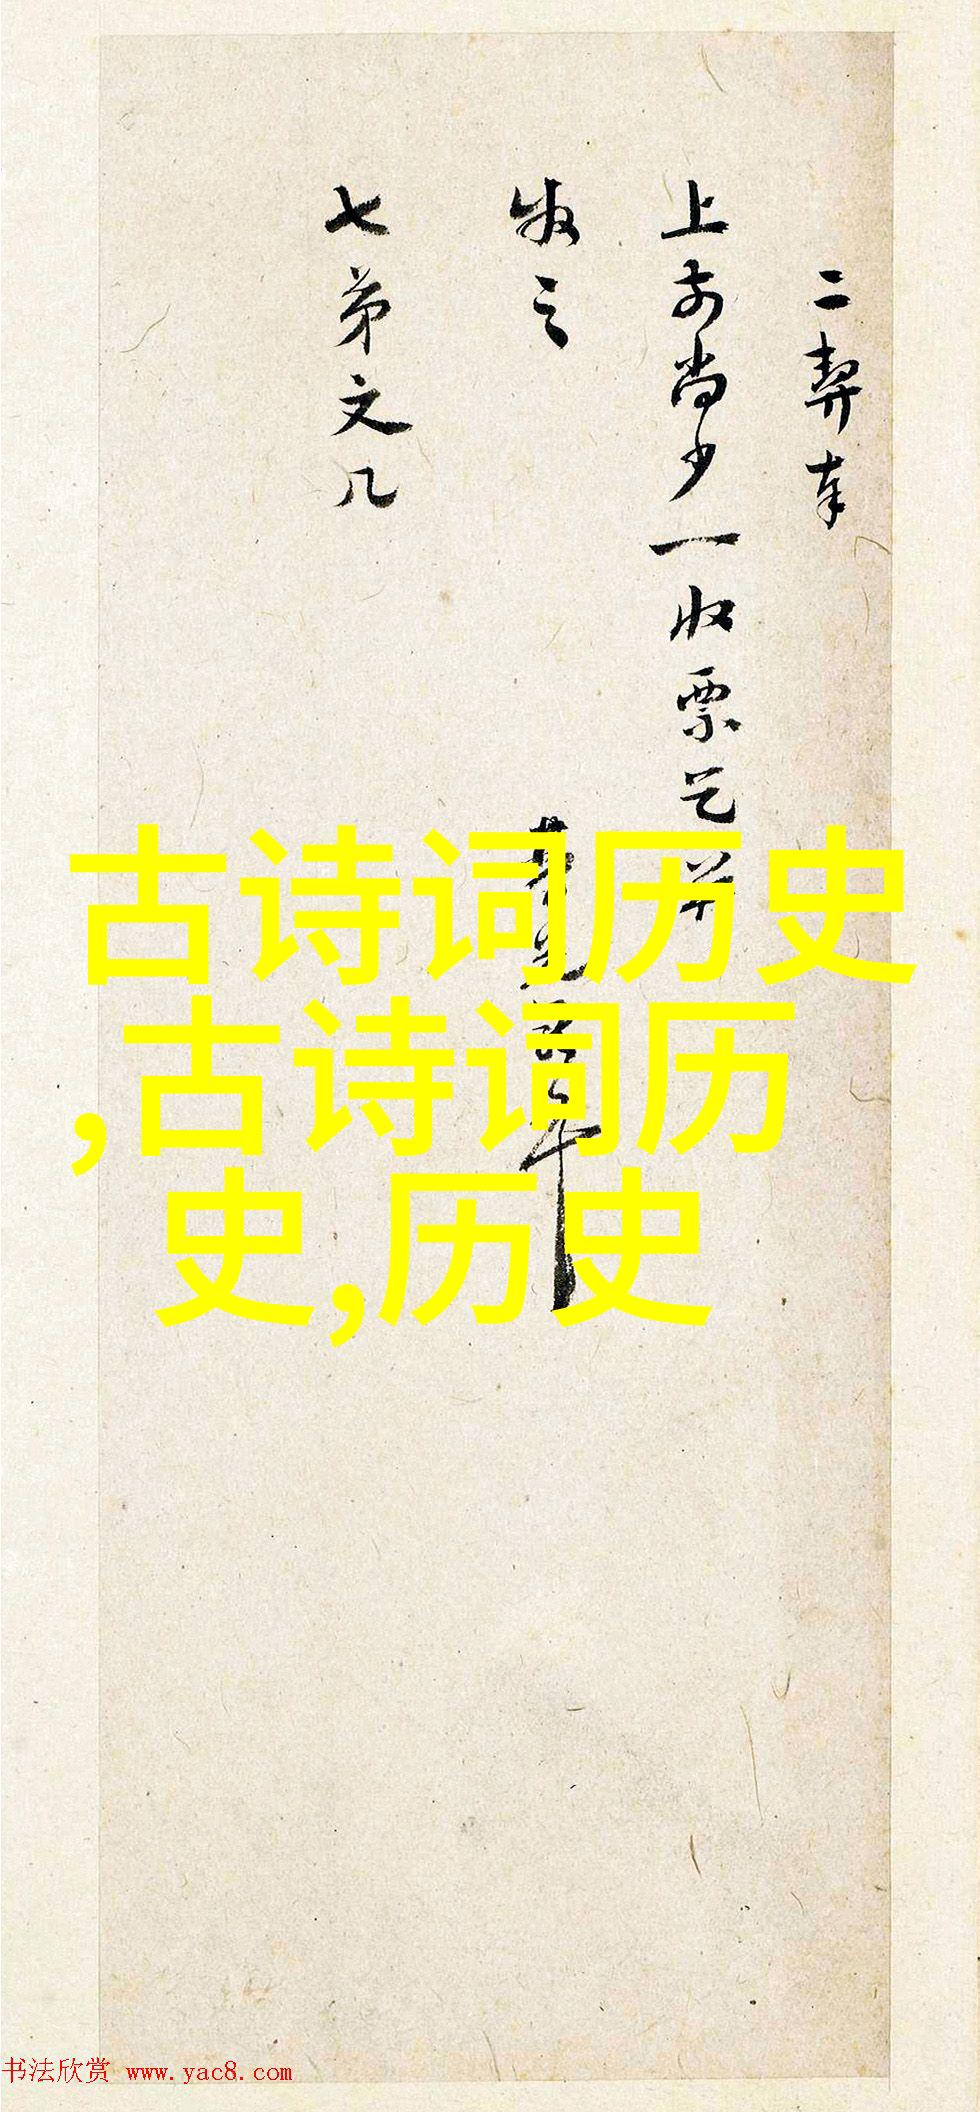 二契奉
上前尚少一收票乞并
收之
七弟文几
古诗词历史
,古诗词历
史,历史
书法欣赏 www.yac8.com